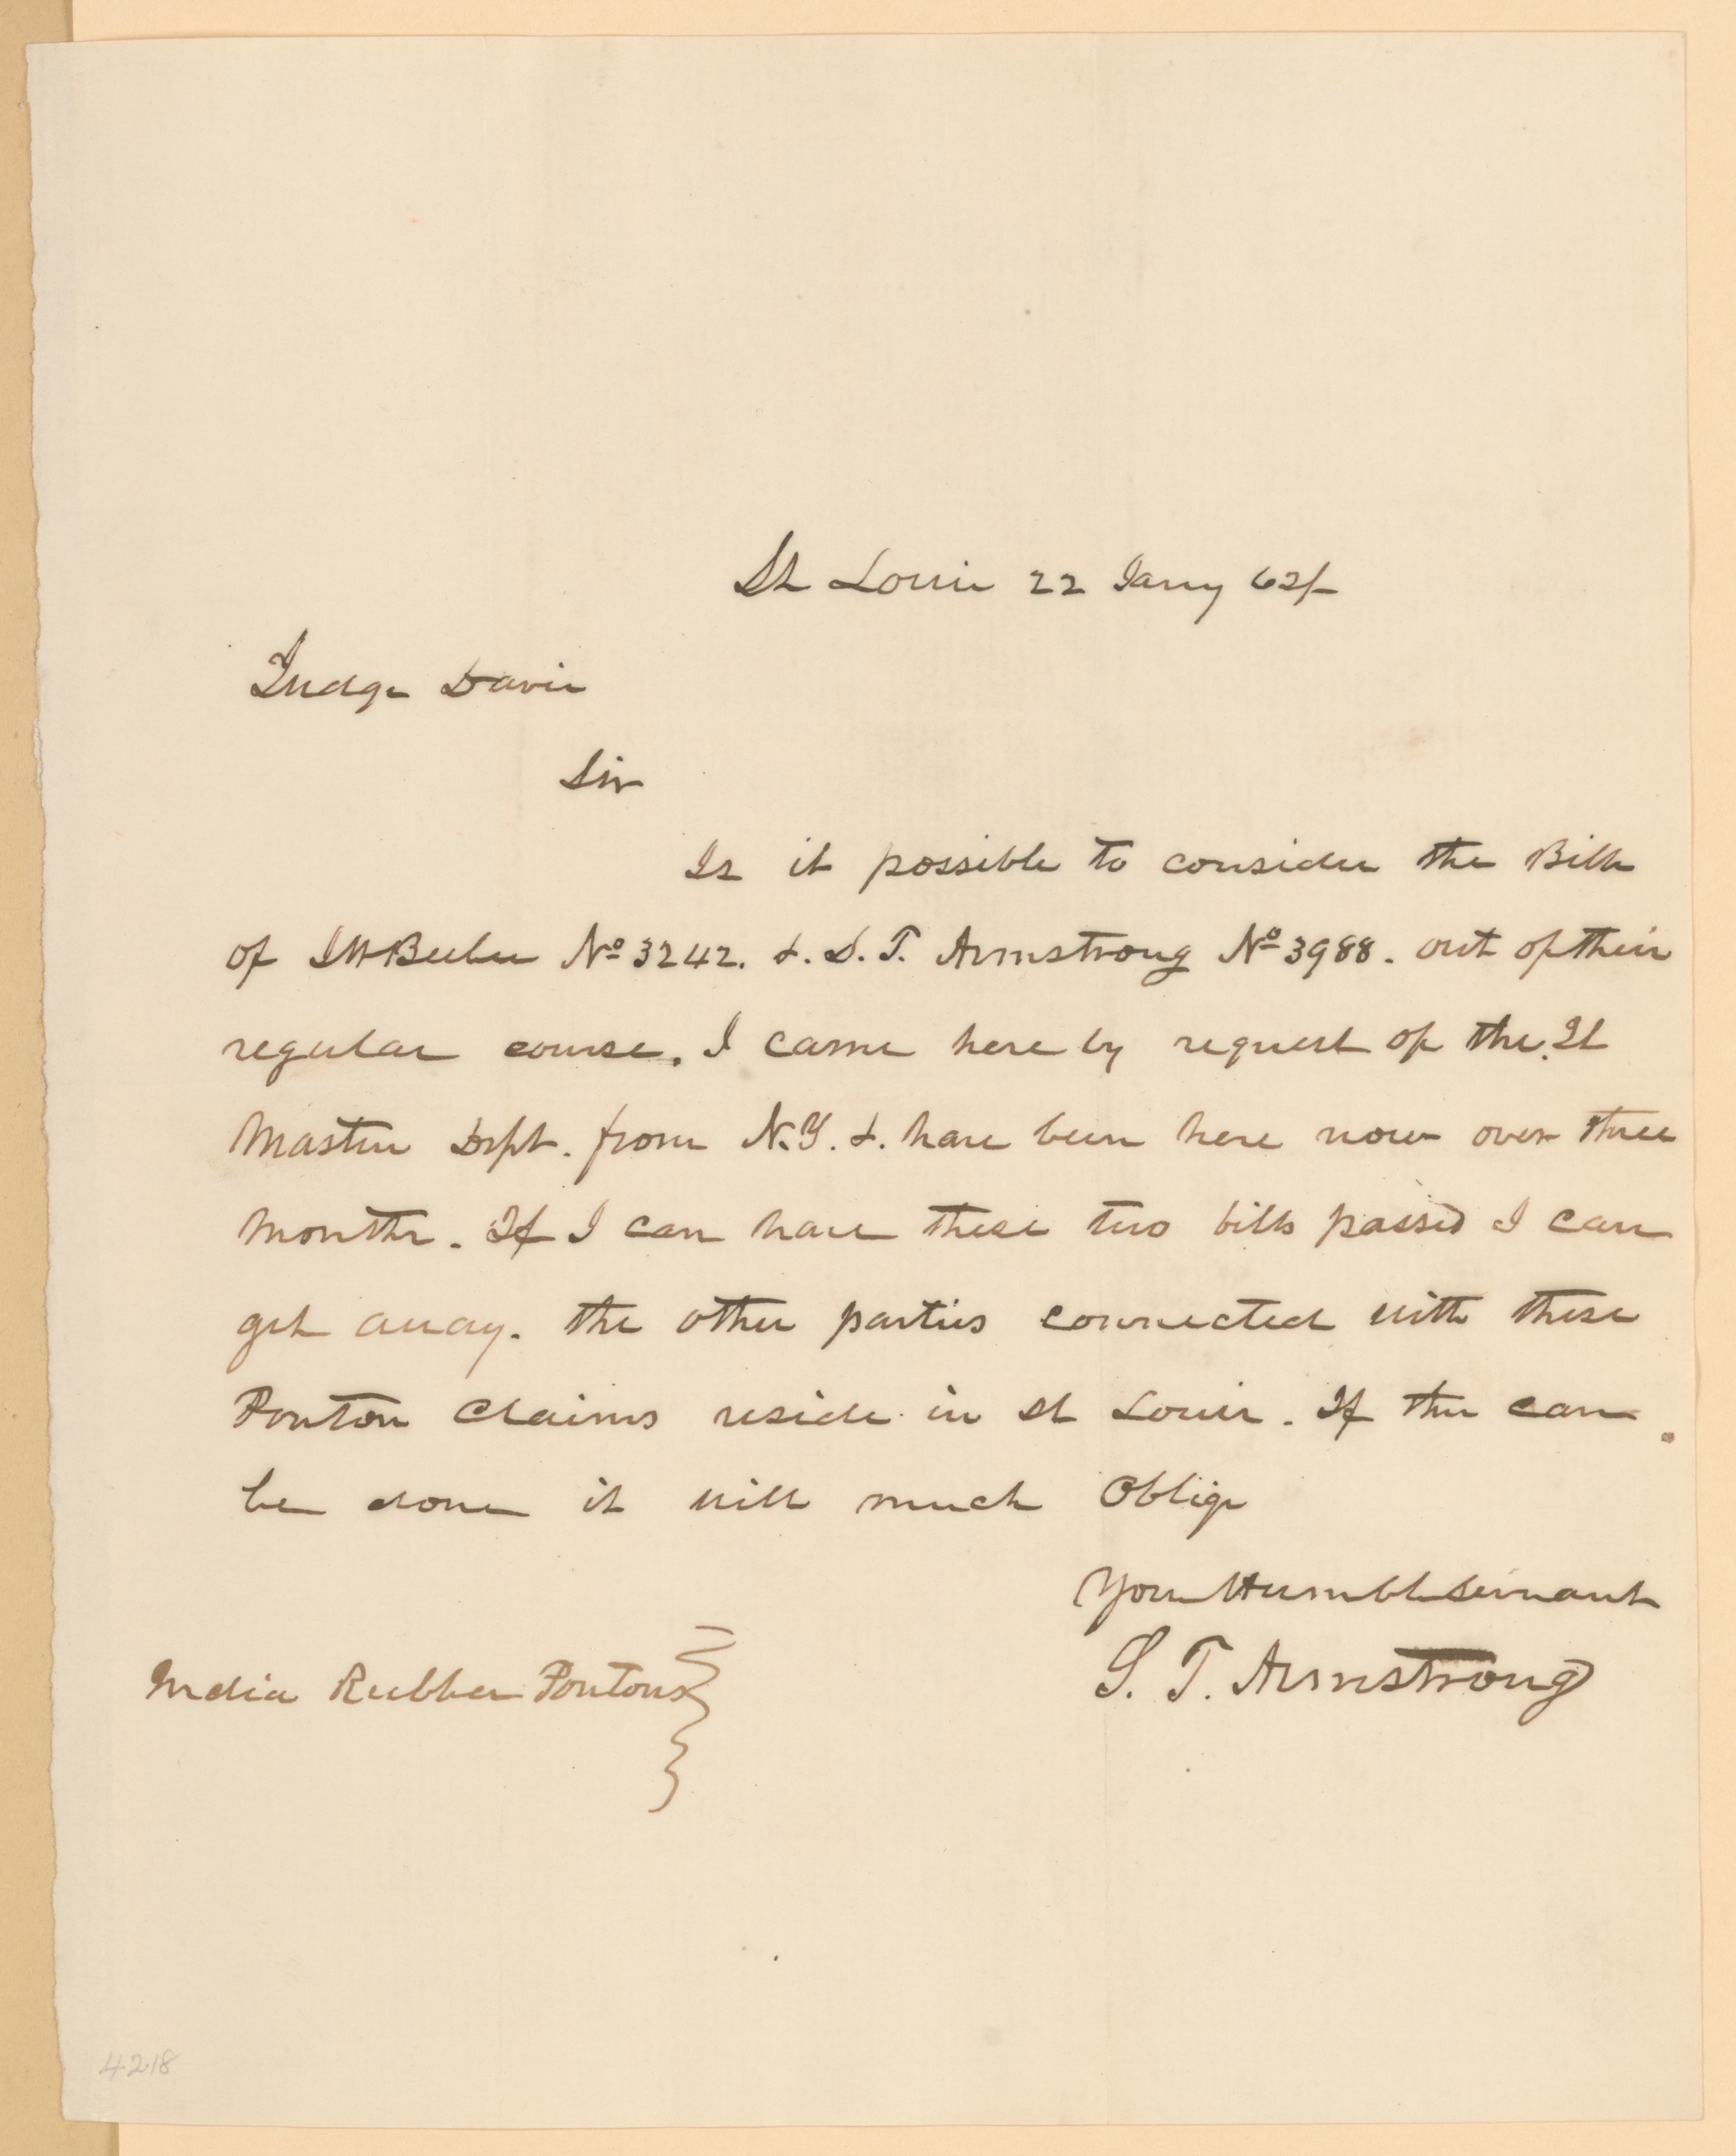 St Louis 22 Jany 62/-
Judge Davis
Sir
Is it possible to consider the Bills
of No 3242. &. S. T. Armstrong No 3988. out of their
regular course. I came here by request of the Qt
Master Dept. from N.Y. &. have been here now over three
months. If I can have these two bills passed I can
get away. the other parties connected with these
Ponton Claims reside in St Louis. If this can
be done it will much Oblige
Your Humble Servant
S. T. Armstrong
India Rubber Pontons
4218